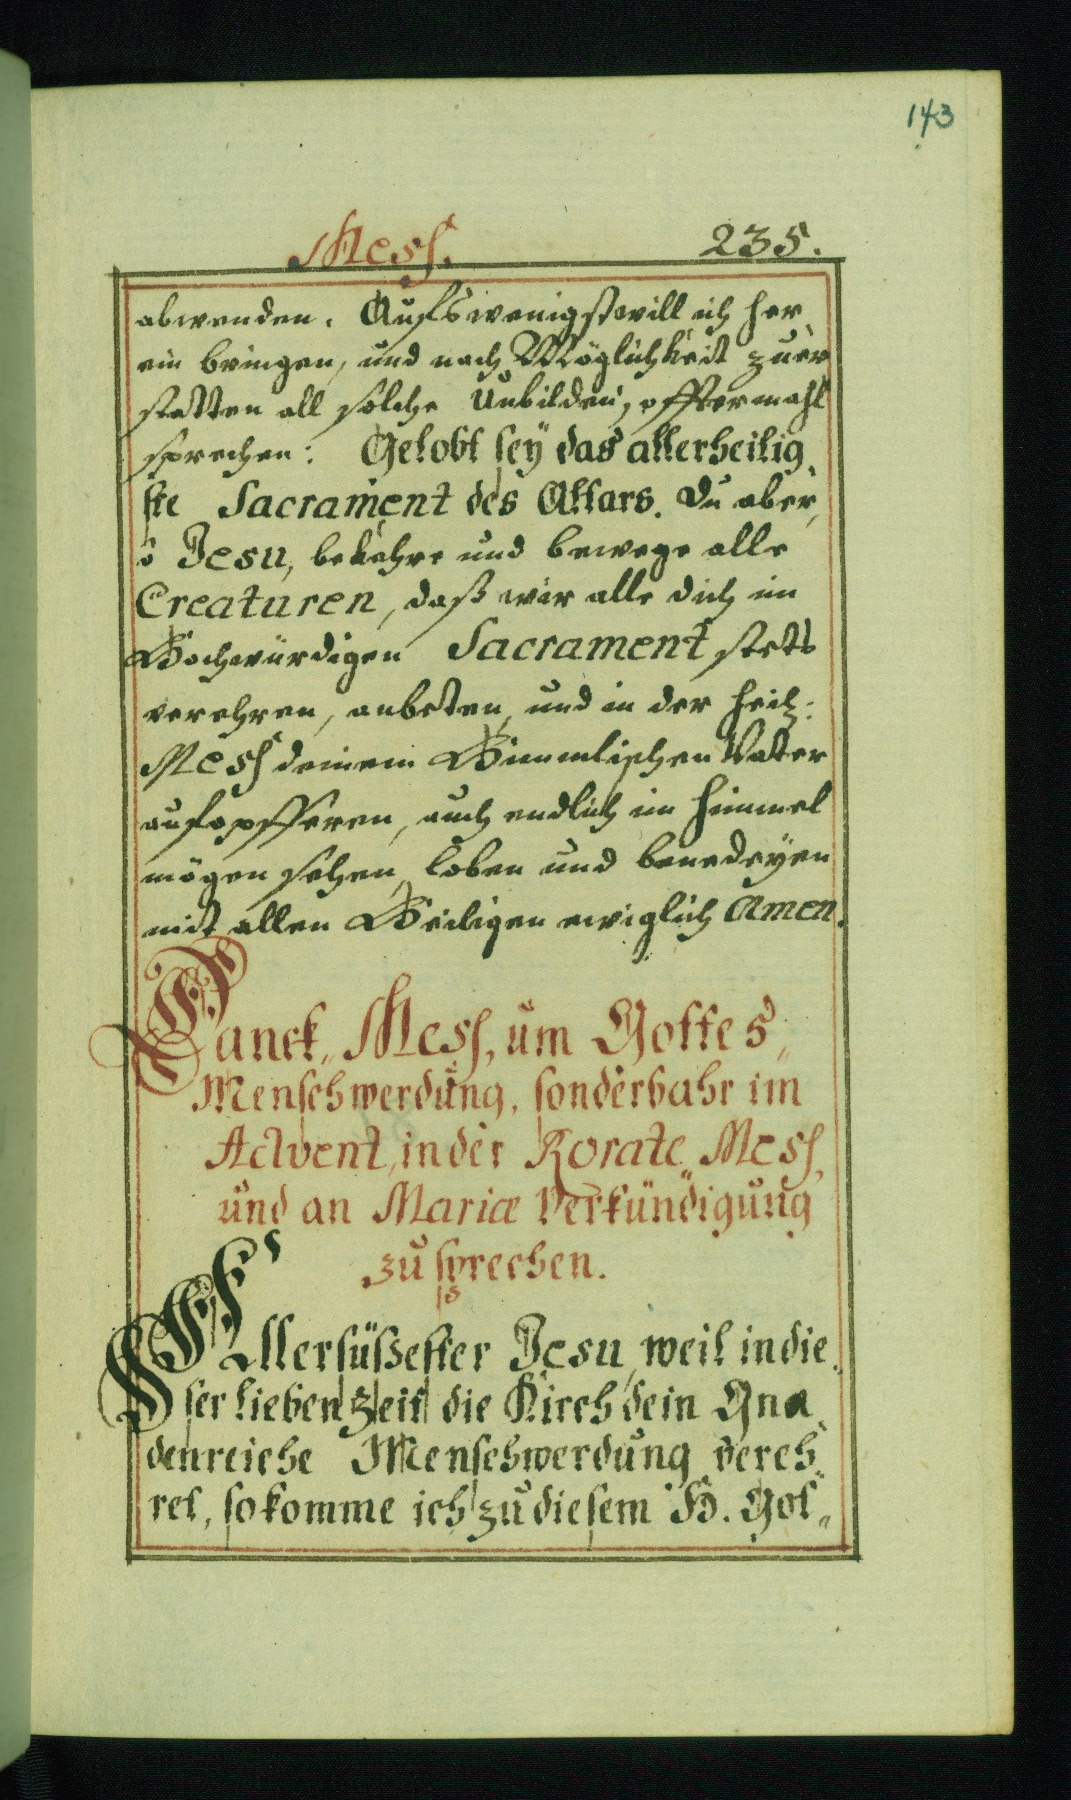 143
Mess. 235.
abwenden. Aufs wenigst will ich her¸
ein bringen, und nach Möglichkeit zu er¸
statten all solche Unbilden, offtermahl
sprechen: Gelobt seÿ das allerheilig¸
ste Sacrament des Altars. Du aber,
ô Jesu, bekehre und bewege alle
Creaturen, daß wir alle dich im
Hochwürdigen Sacrament stets
verehren, anbeten, und in der heil:
Mess deinem Himmlischen Vater
aufopfferen, auch endlich im himmel
mögen sehen, loben und benedeÿen
mit allen Heiligen ewiglich Amen.
Danck„ Mess, um Gottes„
Menschwerdung, sonderbahr im
Advent, in der Rorate Mess,
und an Mariæ Verkündigung
zu sprechen.
Allersüßester Jesu, weil in die¸
ser lieben Zeit die Kirch dein Gna¸
denreiche Menschwerdung vereh„
ret, so komme ich zu diesem H. Got„